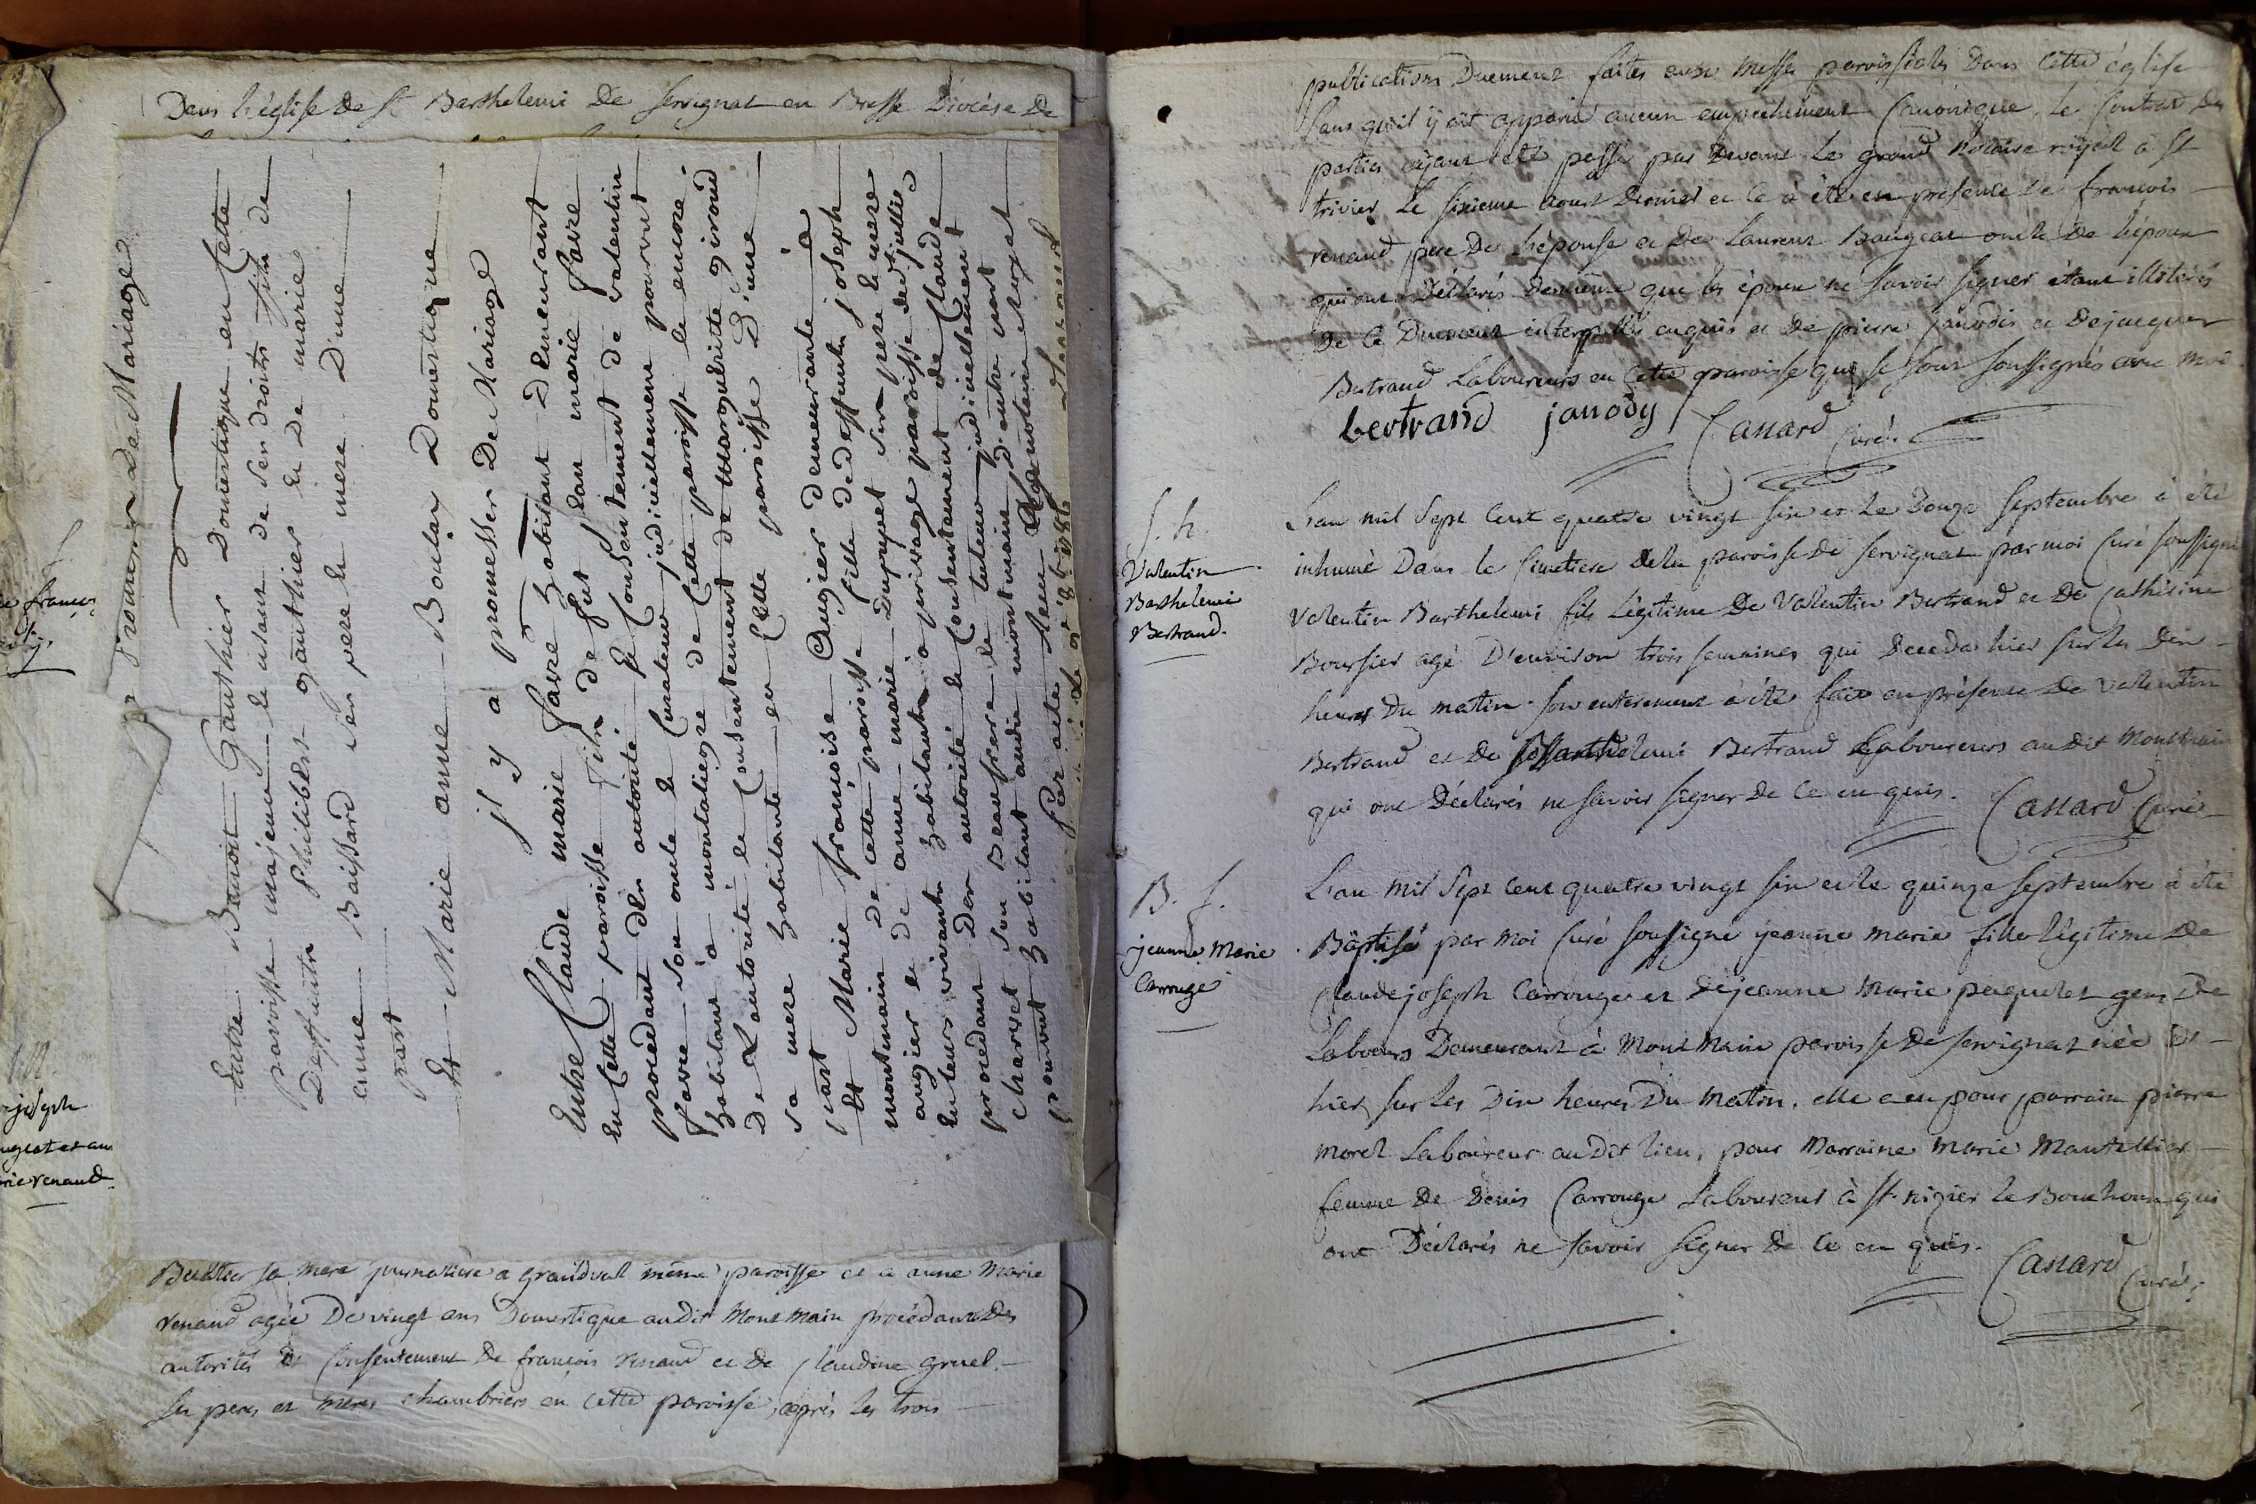 Dans l'église de St Barthelemi De servignat en Bresse Diocèse De
promesses De Mariage
Entre Benoit Gauthier Domestique en Cette
paroisse majeur le usant de ses droits fils de
Deffunts Philibert Gauthier et De marie
anne Baissard ses pere le mere D'une
part
Et Marie anne Domestique
jl y a promesses De Mariage
Entre Claude marie favre habitant Demeurant
en Cette paroisse fils de fut Jean marie favre
procedant de autorité le Consentement de valentin
favre son oncle le Curateur judiciellement pourvut
habitant a montaliegre de Cette paroisse le encore
De L'autorité le Consentement de marguéritte giroud
sa mere habitante en Cette paroisse D'une
part
Et Marie françoise augier demeurante a
montmain de Cette paroisse fille de deffunts joseph
augier le de anne marie Dupuget ses pere le mere
en leurs vivants habitants a paroisse de st jullie
procedant De autorité le Consentement de Claude
charvet son Beaufrere le tuteur judiciellement
pourvut habitant audit montmain d'autre part
par acte reçu notaire royal
Berthier sa mere journaliere a grandval même paroisse et a anne Marie
renaud agée De vingt ans Domestique audit Montmain procédant des
autorités et Consentement De françois renaud et de Claudine gruel
ses peres et meres chambriers en cette paroisse, après les trois
joseph
ugeat et an
rie renaud
publications Duement faites aux Messes paroissiales Dans Cette église
sans qu'il y ait apparu aucun empechement Canonique, le Contrat des
parties ayant été passé par devant Le grand Notaire royal à St
trivier le sixieme aout Dernier et ce a été en présence de françois
renaud pere De l'épouse et De Laurent Baugeat oncle De l'époux
qui ont Déclarés Dememe que les époux ne savoir signer étant illiterés
De ce Duement interpellés enquis et De pierre janodis et De jacques
Bertrand Laboureurs en Cette paroisse qui se sont soussignés avec moi
bertrand janody Canard Curé
S. h.
Valentin
Barthelemi
Bertrand.
L'an mil sept Cent quatre vingt six et Le Douze septembre à été
inhumé Dans le Cimetiere de la paroisse de servignat par moi Curé soussigné
Valentin Barthelemi fils Légitime De Valentin Bertrand et De Catherine
Boursier agé D'environ trois semaines qui Deceda hier sur les Dix
heures Du matin. son enterrement à été fait en présence De Valentin
Bertrand et De Barthelemi Bertrand Laboureurs audit Montmain
qui ont Déclarés ne savoir signer De Ce enquis. Canard Curé
B. f.
jeanne Marie
Carrouge
L'an Mil Sept Cent quatre vingt six et le quinze septembre à été
Baptisé par moi Curé soussigné jeanne marie fille légitime De
Claude joseph Carrouge et De jeanne Marie pequelet gens De
Labours Demeurant à Mont Main paroisse De servignat née
hier sur les Dix heures Du Matin. elle a eu pour parrain pierre
morel Laboureur au Dit lieu, pour Marraine Marie Mantellier
femme De Denis Carrouge Laboureur à St nizier le Bouchoux qui
ont Déclarés ne savoir signer De Ce enquis. Canard Curé